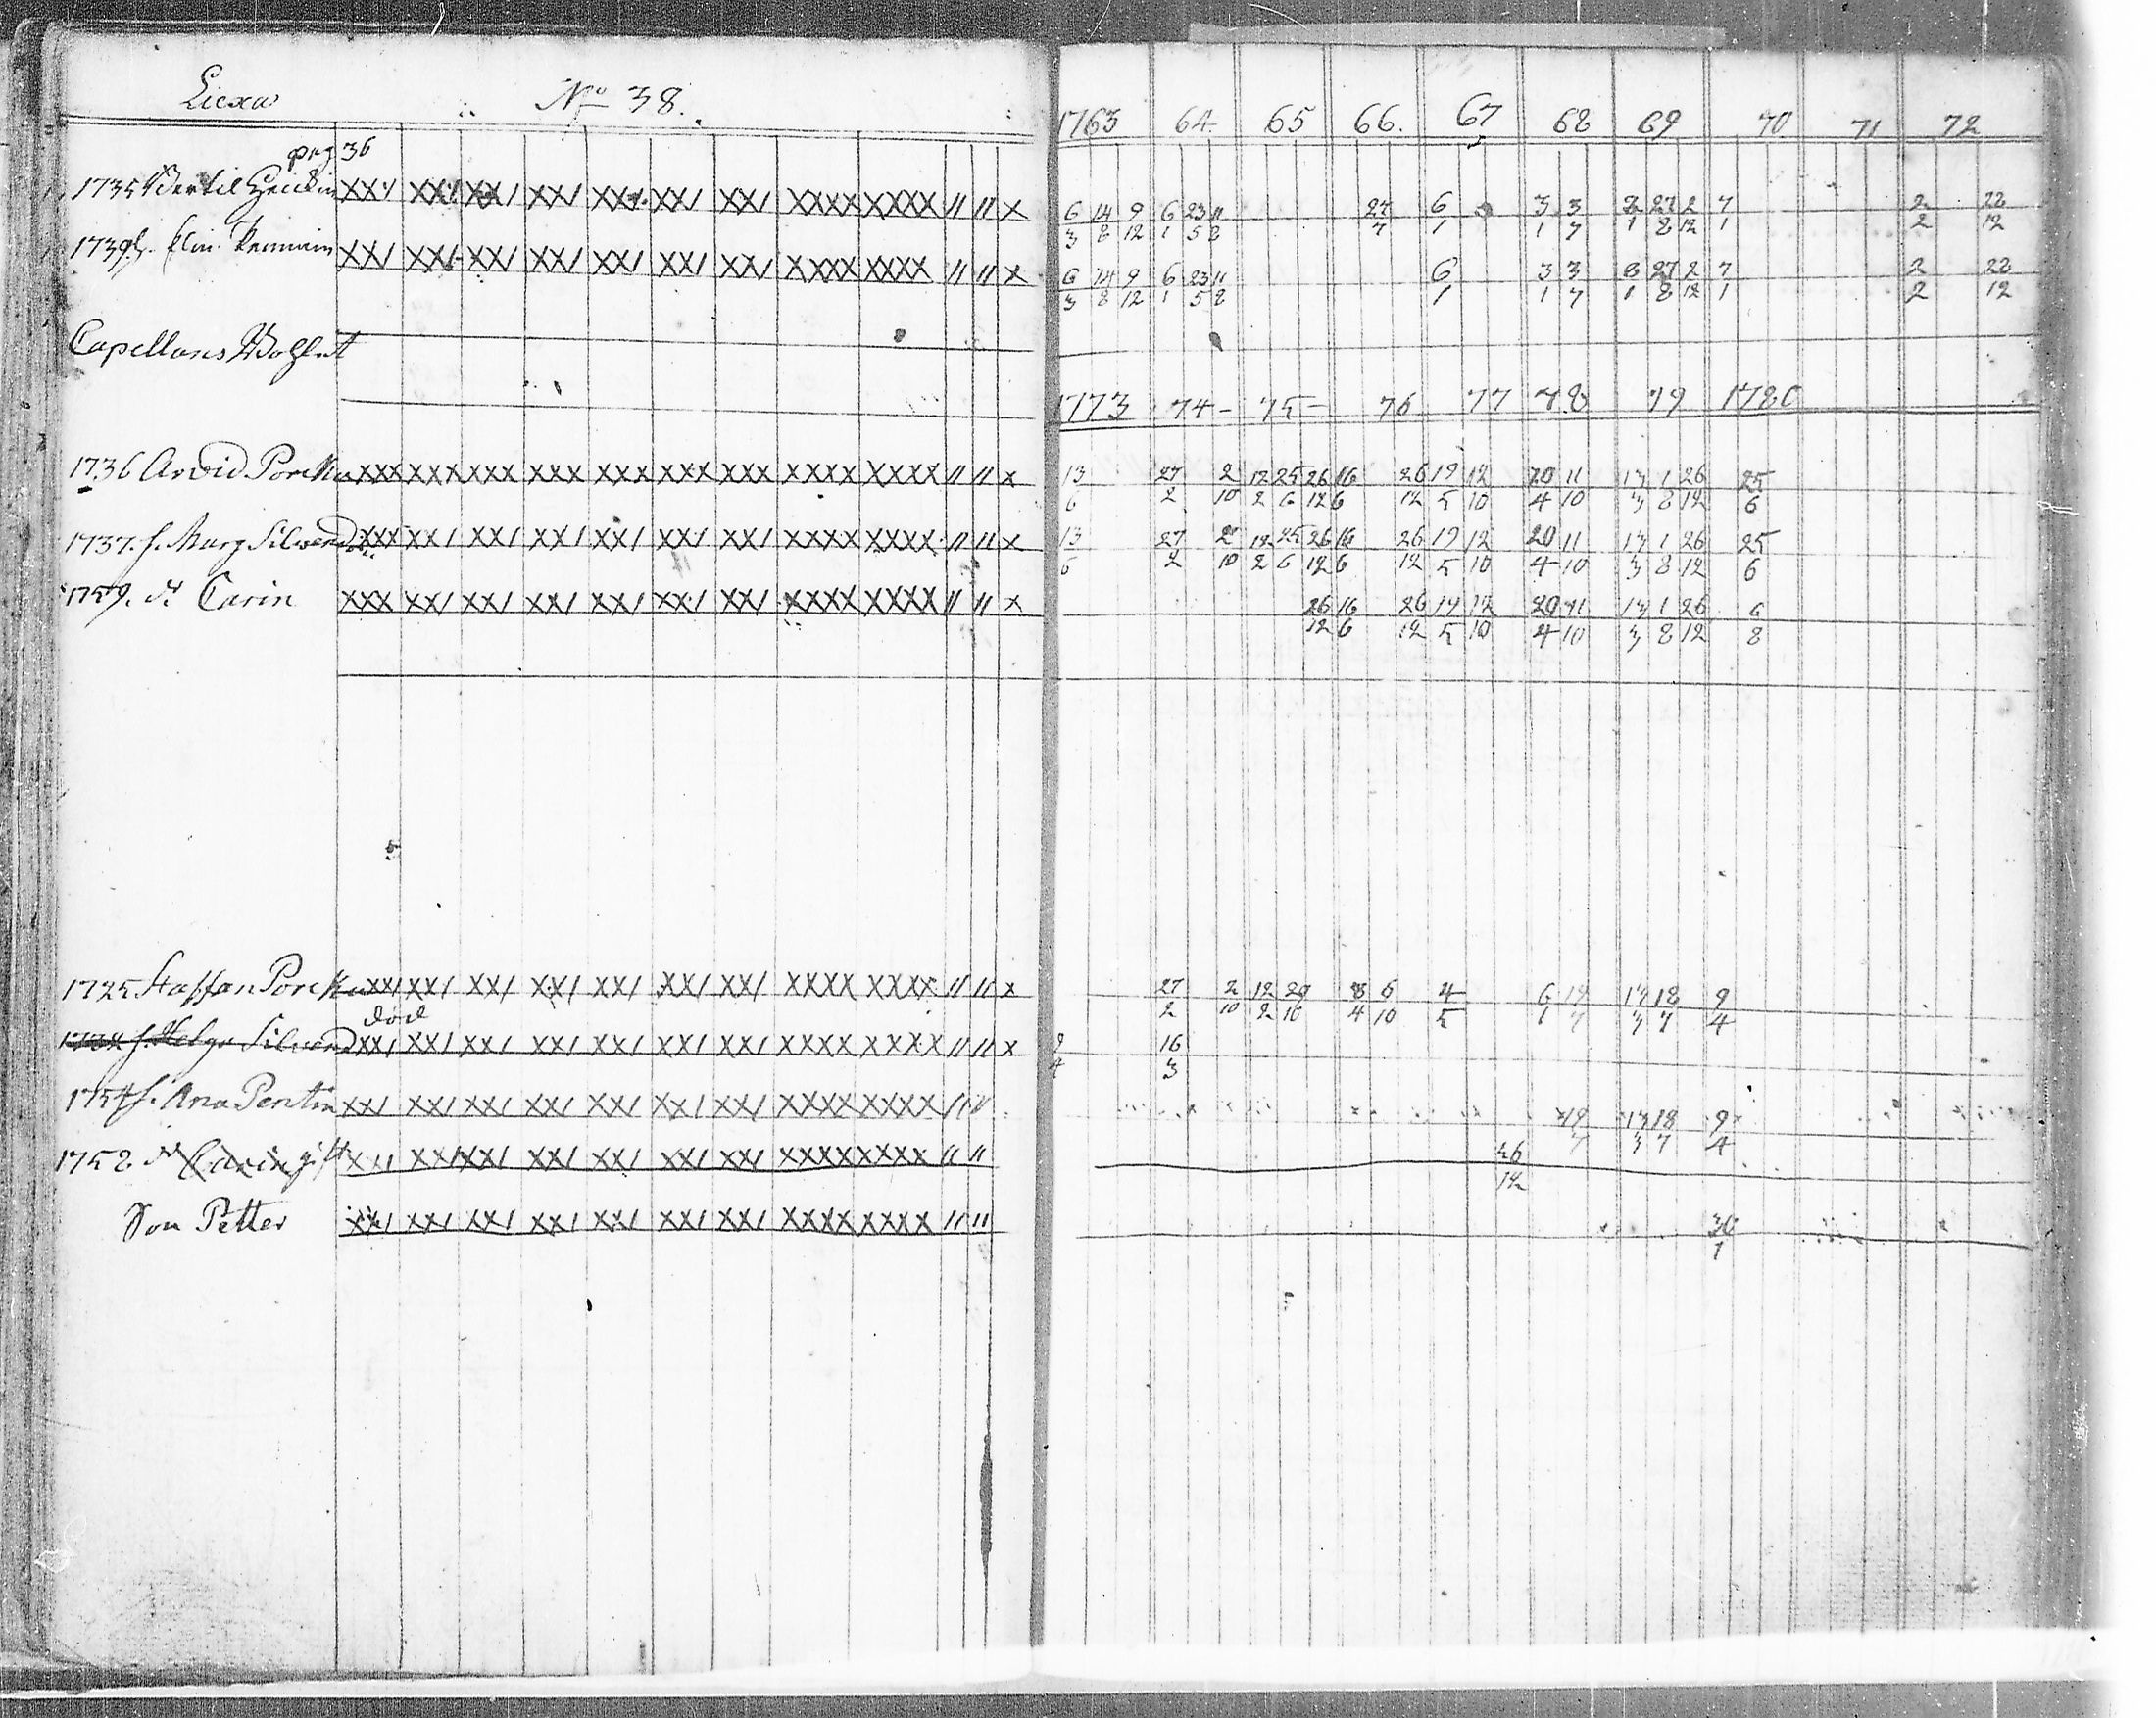 Liexa N:o 38.
1763 64. 65 66. 67 68 69 70 71 72
pag 36
1735 Bertil XX/ XX/ XX/ XX/ XX/ XX/ XX/ XXXX XXXX // // X
6 14 9 6 23 11 27 6 3 3 27 2 7 2 22
3 8 12 1 5 8 7 1 1 7 1 8 12 1 2 12
1739 h. Elin XX/ XX/ XX/ XX/ XX/ XX/ XX/ XXXX XXXX // // X
6 14 9 6 23 11 6 3 3 27 2 7 2 22
3 8 12 1 5 8 1 1 7 1 8 12 1 2 12
Capellans
1773 74- 75- 76 77 78 79 1780
1736 Arvid XXX XXX XXX XXX XXX XXX XXX XXXX XXXX // // X
13 27 2 12 25 26 16 26 19 12 20 11 13 1 26 25
6 2 10 2 6 12 6 12 5 10 4 10 3 8 12 6
1737. h. Marg XXX XX/ XX/ XX/ XX/ XX/ XX/ XXXX XXXX // // X
13 27 2 12 25 26 16 26 19 12 20 11 13 1 26 25
6 2 10 2 6 12 6 12 5 10 4 10 3 8 12 6
1759. d. Carin XXX XX/ XX/ XX/ XX/ XX/ XX/ XXXX XXXX // // X
26 16 26 19 12 20 11 13 1 26 6
12 6 12 5 10 4 10 3 8 12 8
1725 Staffan XX/ XX/ XX/ XX/ XX/ XX/ XX/ XXXX XXXX // // X
27 2 12 29 8 6 4 6 19 13 18 9
2 10 2 10 4 10 5 1 7 3 7 4
död
h. Helga XX/ XX/ XX/ XX/ XX/ XX/ XX/ XXXX XXXX // // X
16
3
1754 h. Ana Pentin XX/ XX/ XX/ XX/ XX/ XX/ XX/ XXXX XXXX
19 13 18 9
7 3 7 4
1752 d. Carin gift XX/ XX/ XX/ XX/ XX/ XX/ XXXX XXXX // //
26
12
Son Petter XX/ XX/ XX/ XX/ XX/ XX/ XX/ XXXX XXXX // //
30
1